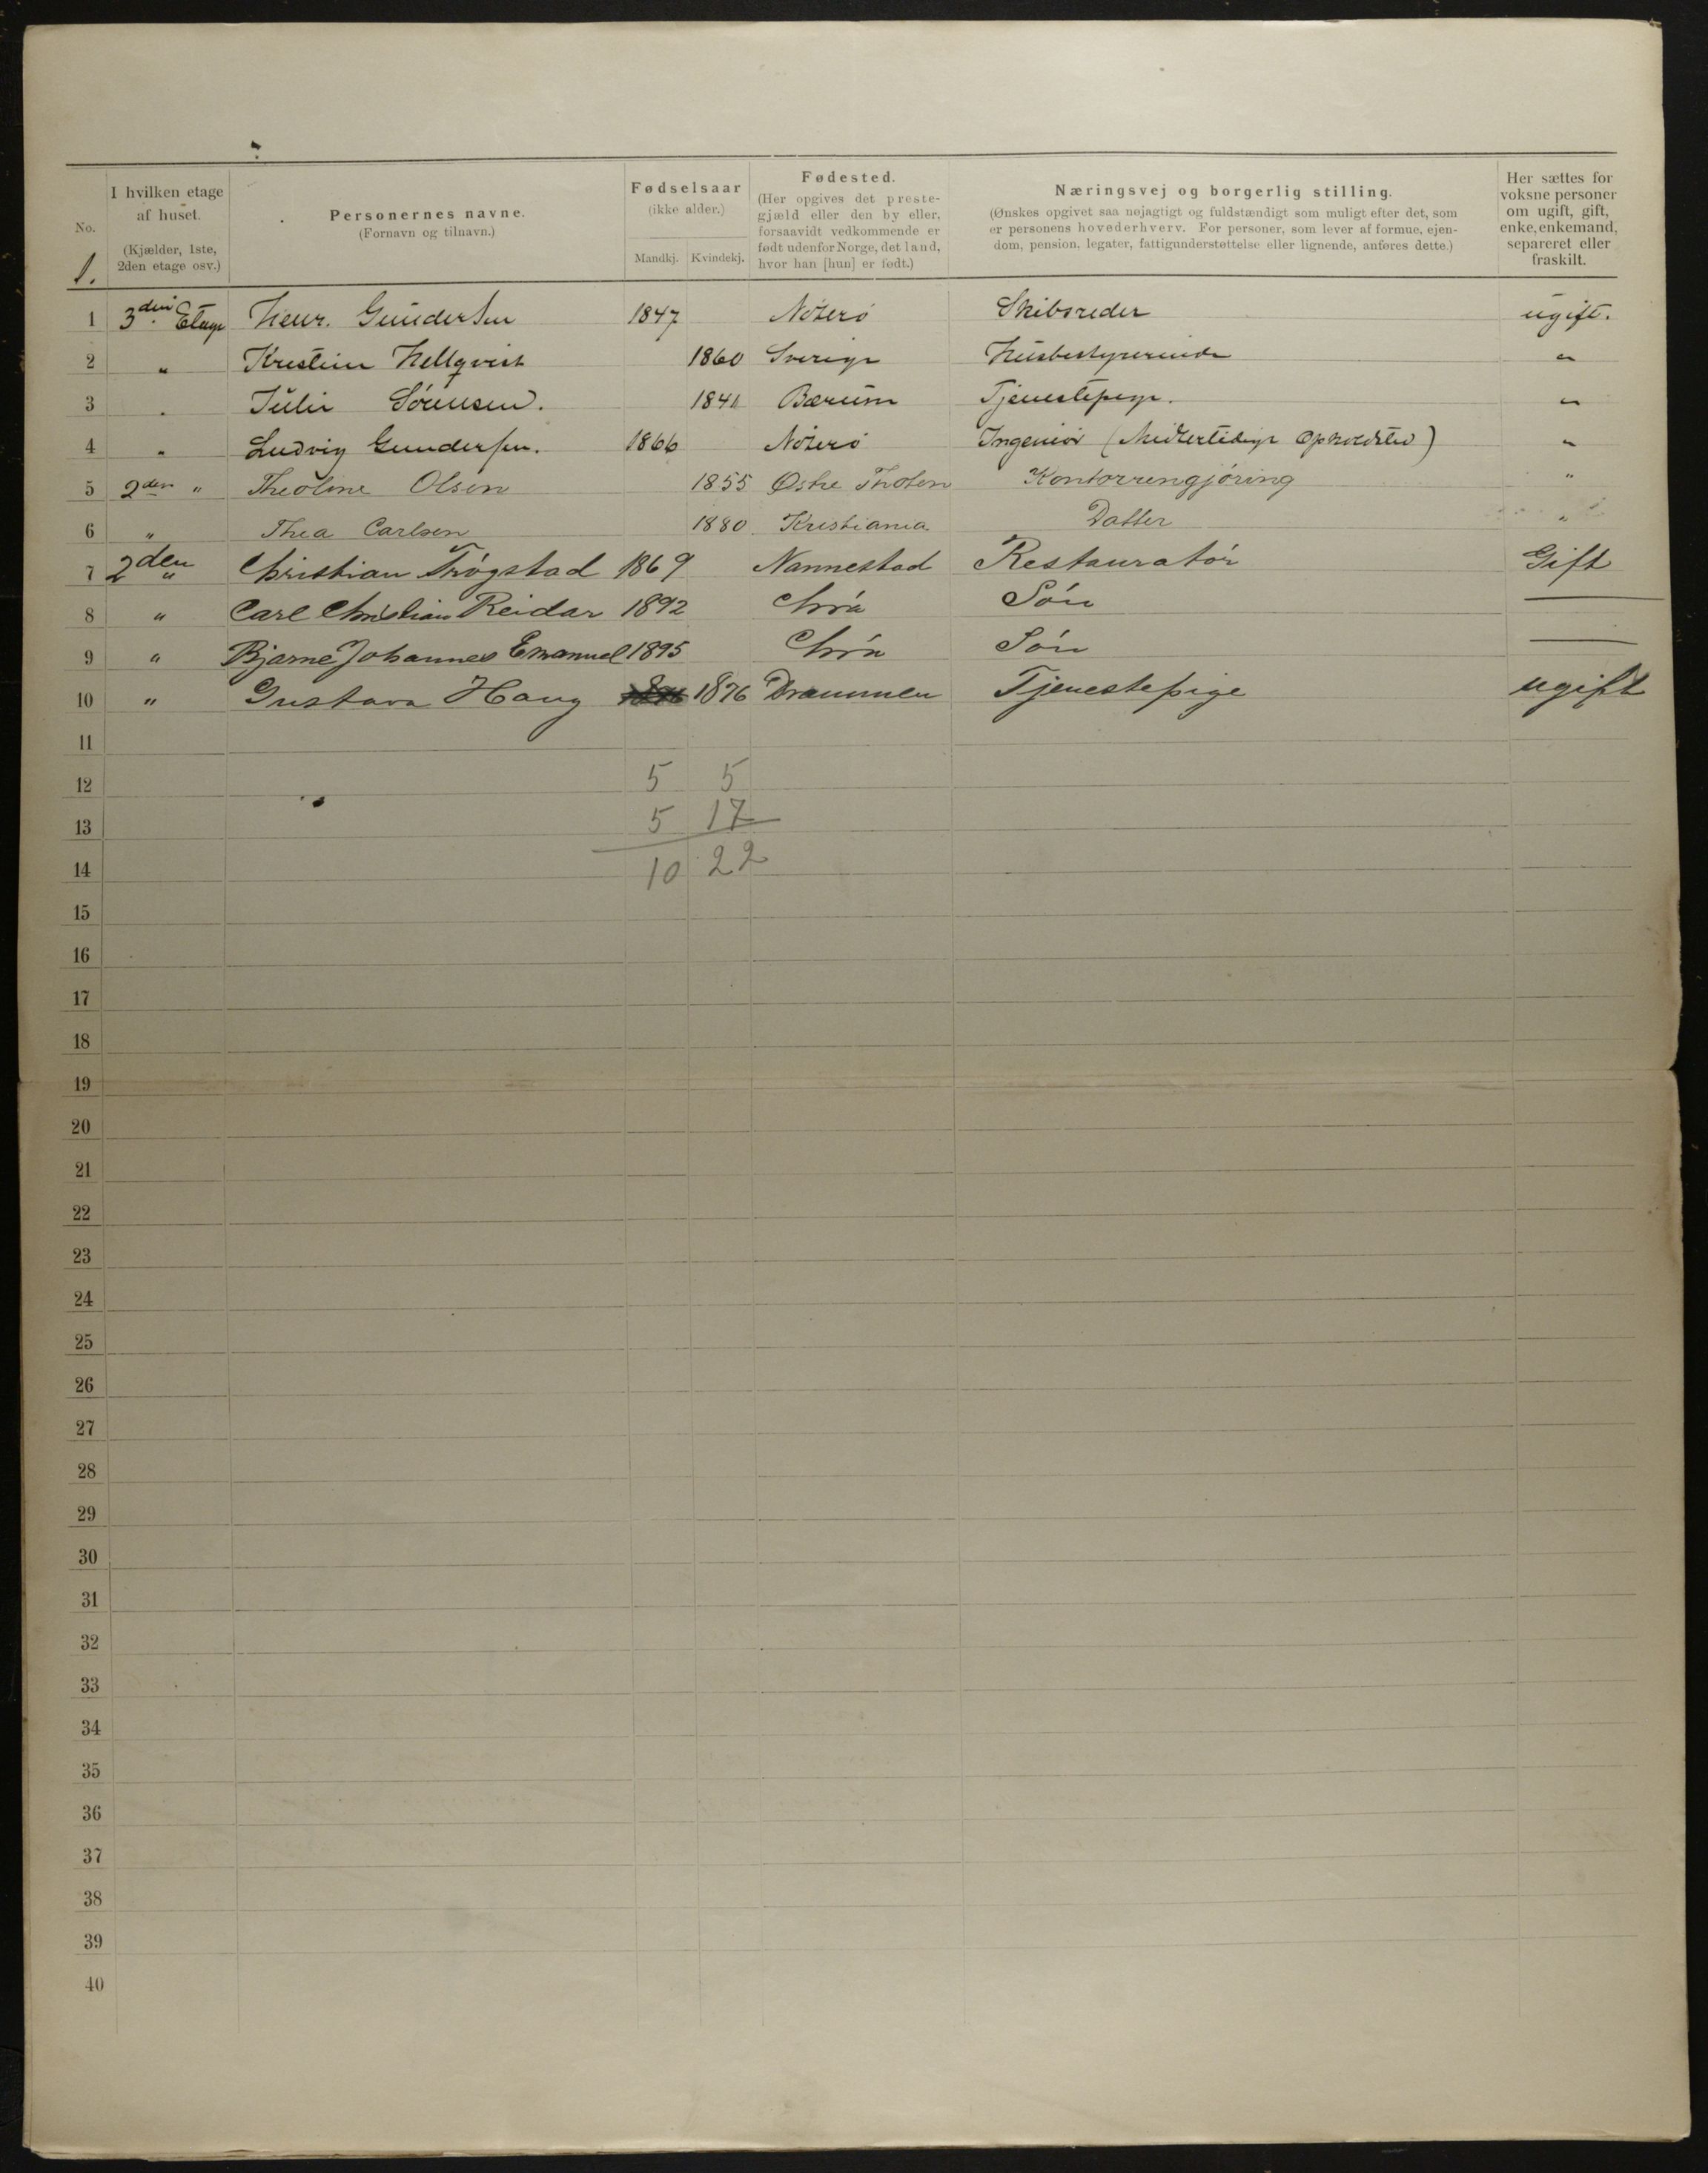 No. | I hvilken etage af huset. (Kjælder, 1ste, 2den etage osv.) | Personernes navne. (Fornavn og tilnavn.) | Fødselsaar (ikke alder.) Mandkj. | Kvindekj. | Fødested. (Her opgives det prestegjæld eller den by eller, forsaavidt vedkommende er født udenfor Norge, det land, hvor han [hun] er født.) | Næringsvej og borgerlig stilling. (Ønskes opgivet saa nøjagtigt og fuldstændigt som muligt efter det, som er personens hovederhverv. For personer, som lever af formue, ejendom, pension, legater, fattigunderstøttelse eller lignende, anføres dette.) | Her sættes for voksne personer om ugift, gift, enke, enkemand, separeret eller fraskilt.
1.
1 3den Etage Henr. Gundersen 1847 Nøterø Skibsreder ugift.
2 " Kristine Hellqvist 1860 Sverige Husbestyrerinde "
3 " Julie Sørensen. 184 Bærum Tjenestepige. "
4 " Ludvig Gundersen. 1866 Nøterø Ingeniør (Midlertidigt Opholdsted) "
5 2den " Theoline Olsen 1855 Østre Thoten Kontorrengjøring "
6 " Thea Carlsen 1880 Kristiania Datter "
7 2den " Christian Trøgstad 1869 Nannestad Restauratør Gift
8 " Carl Christian Reidar 1892 Chria Søn —
9 " Bjarne Johannes Emanuel 1895 Chria Søn —
10 " Gustava Haug 1876 Drammen Tjenestepige ugift
11
12 5 5
13 5 17
14 10 22
15
16
17
18
19
20
21
22
23
24
25
26
27
28
29
30
31
32
33
34
35
36
37
38
39
40